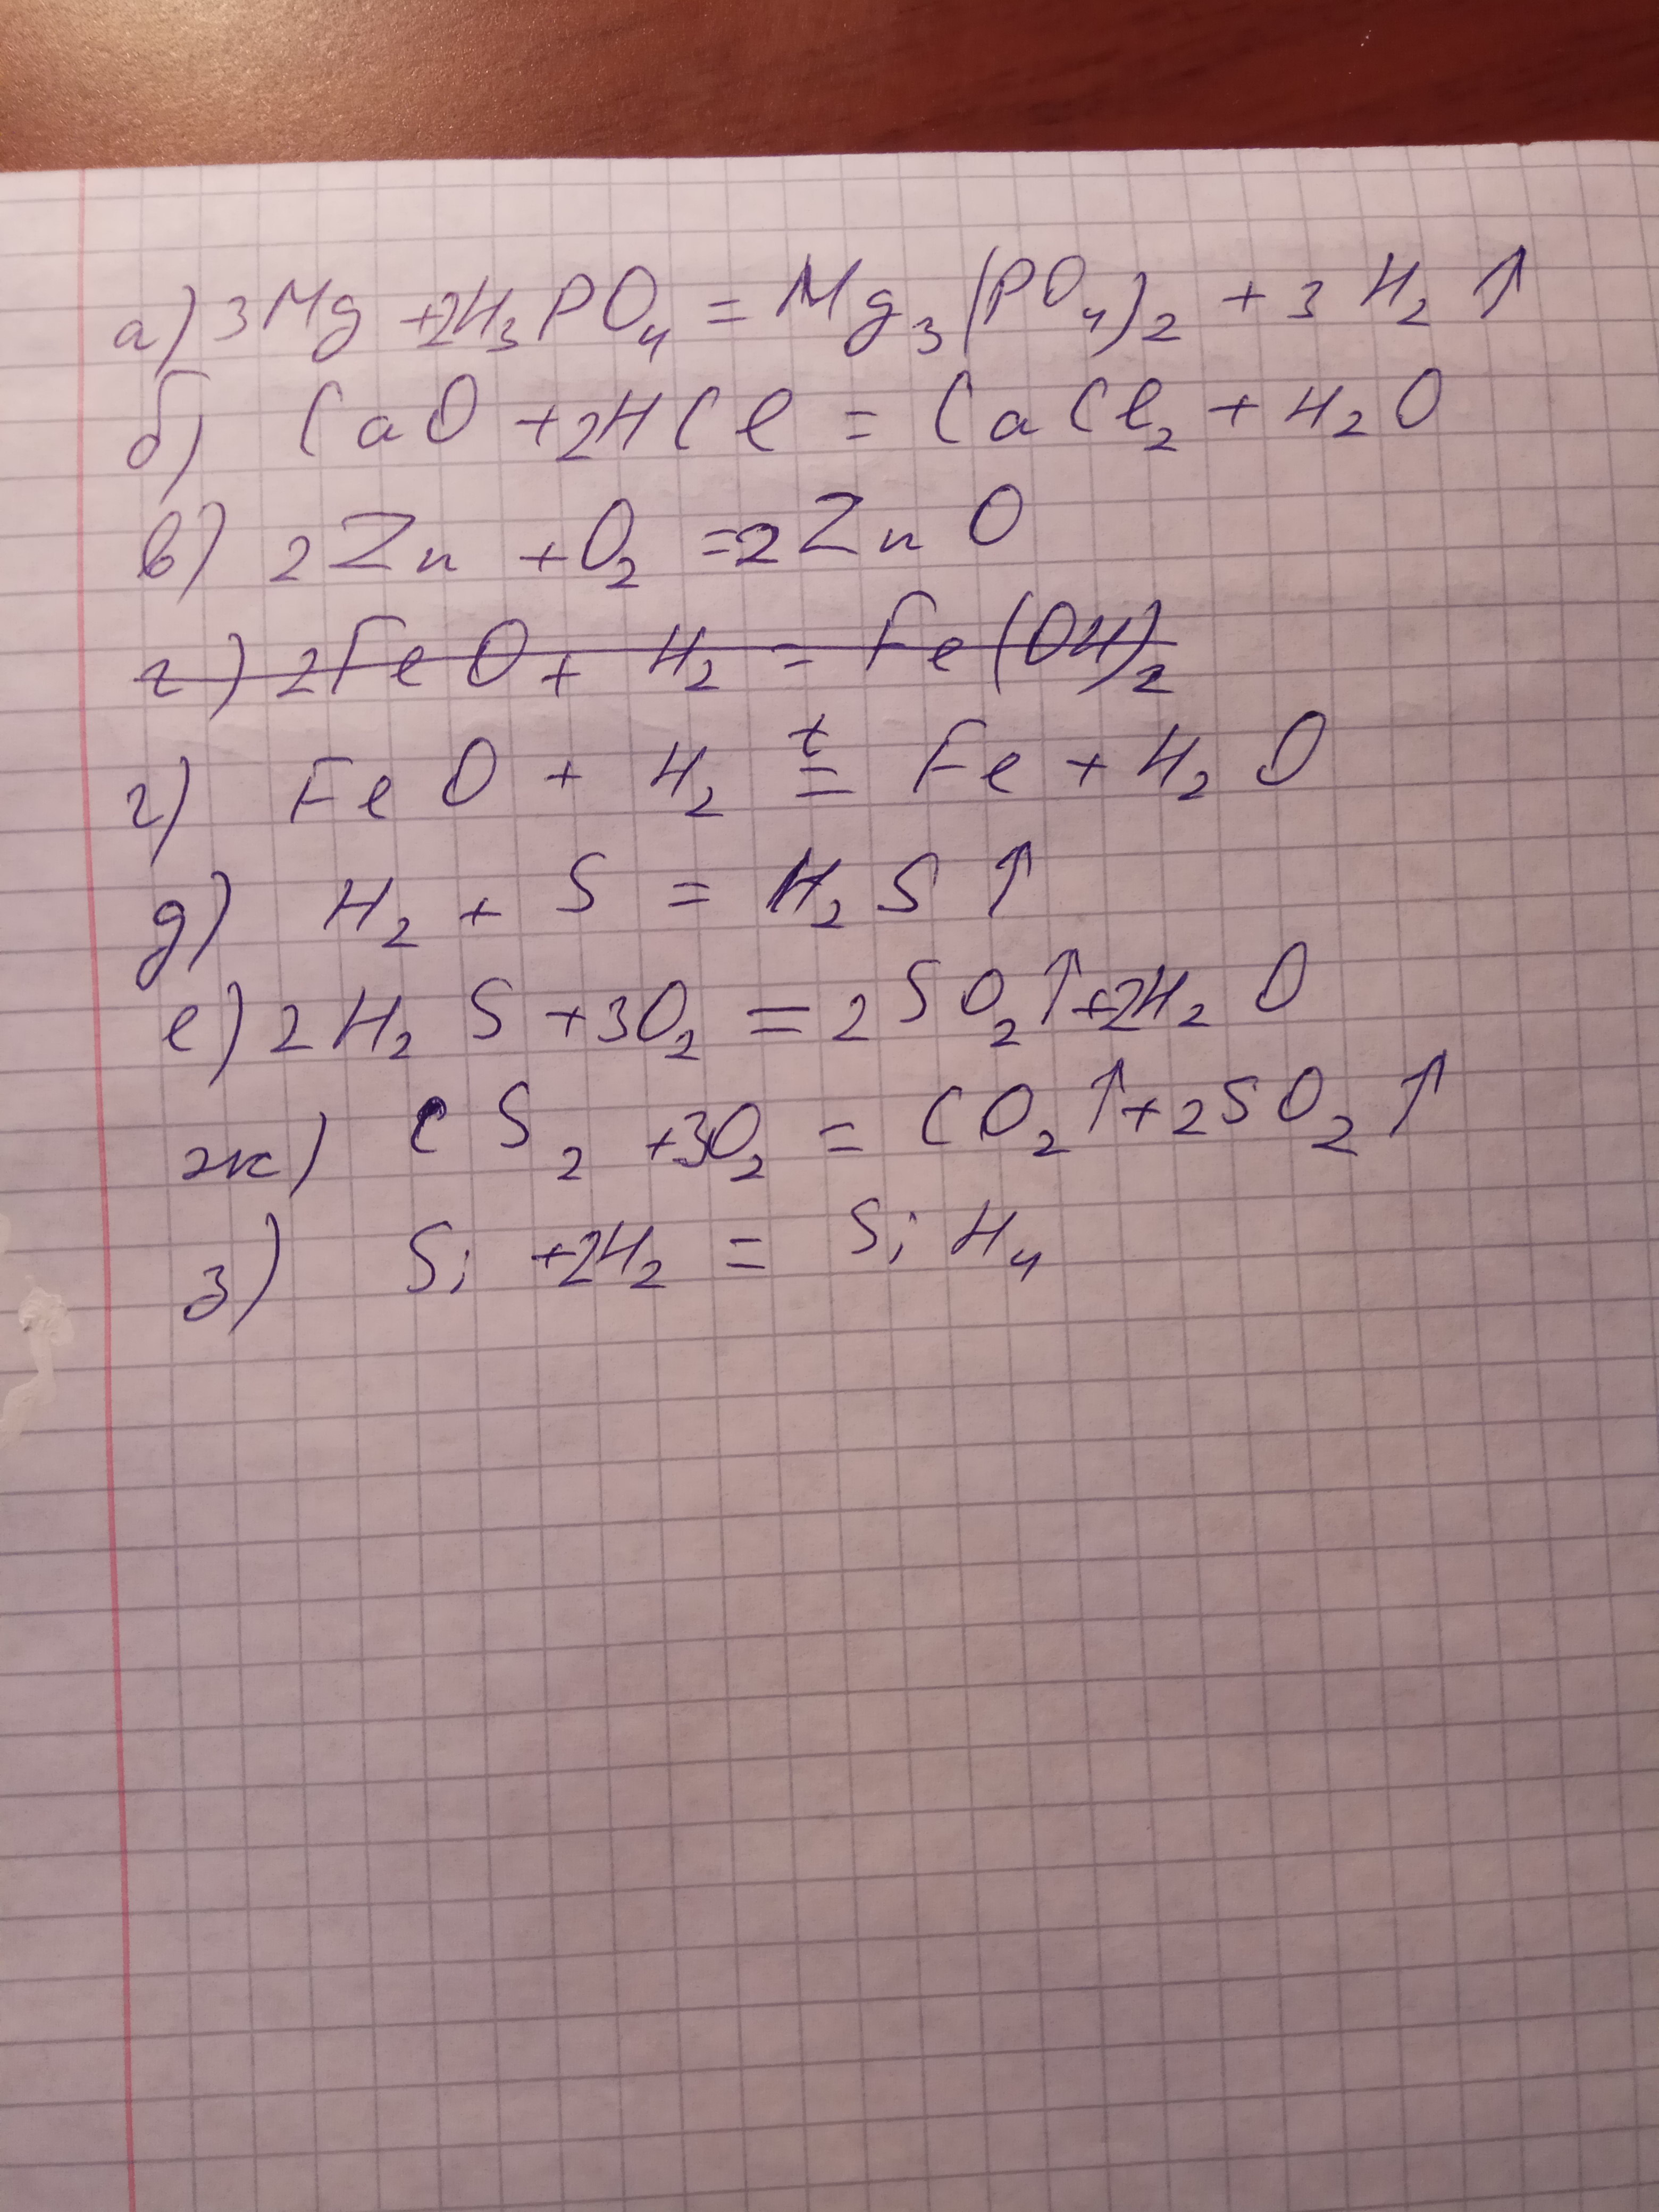 а) 3Mg +2H₃PO₄ = Mg₃(PO₄)₂ + 3H₂ ↑
б) CaO +2HCl = CaCl₂ + H₂O
в) 2Zn +O₂ =2ZnO
г) 2FeO + H₂ = Fe(OH)₂
г) FeO + H₂ =ᵗ Fe + H₂O
д) H₂ + S = H₂S ↑
е) 2H₂S +3O₂ = 2SO₂↑+2H₂O
ж) CS₂ +3O₂ = CO₂↑+2SO₂↑
з) Si +2H₂ = SiH₄